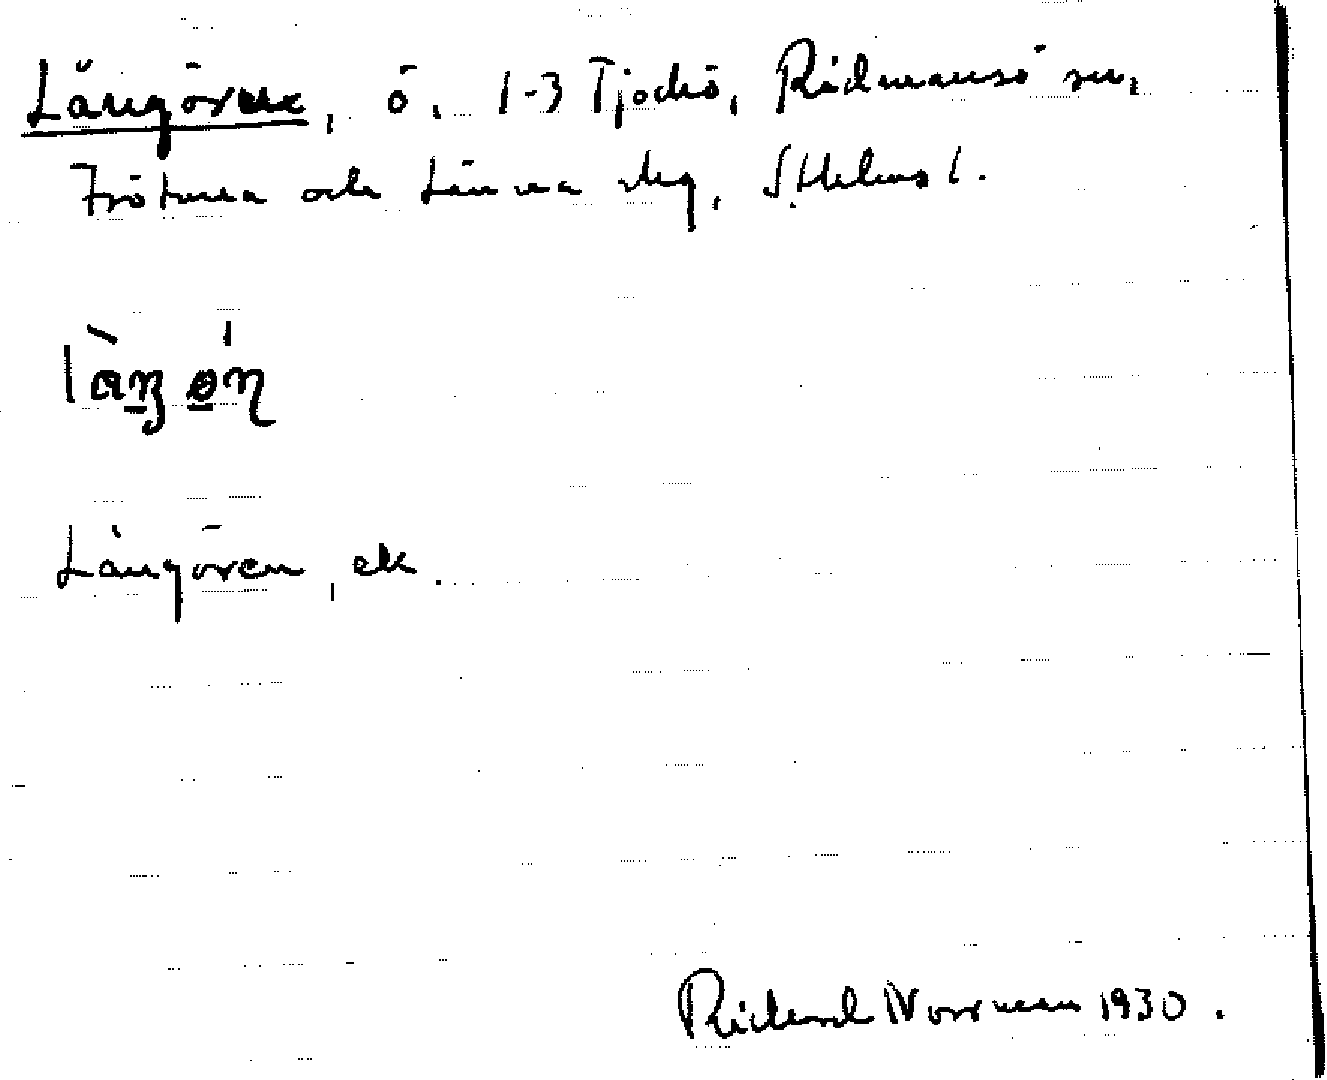 Långörne, ö, 1-3 Tjockö, Rådmansö sn,
Frötuna och Länna skg, Sthlms l.
Långören, ek.
Rickard Norrman 1930.